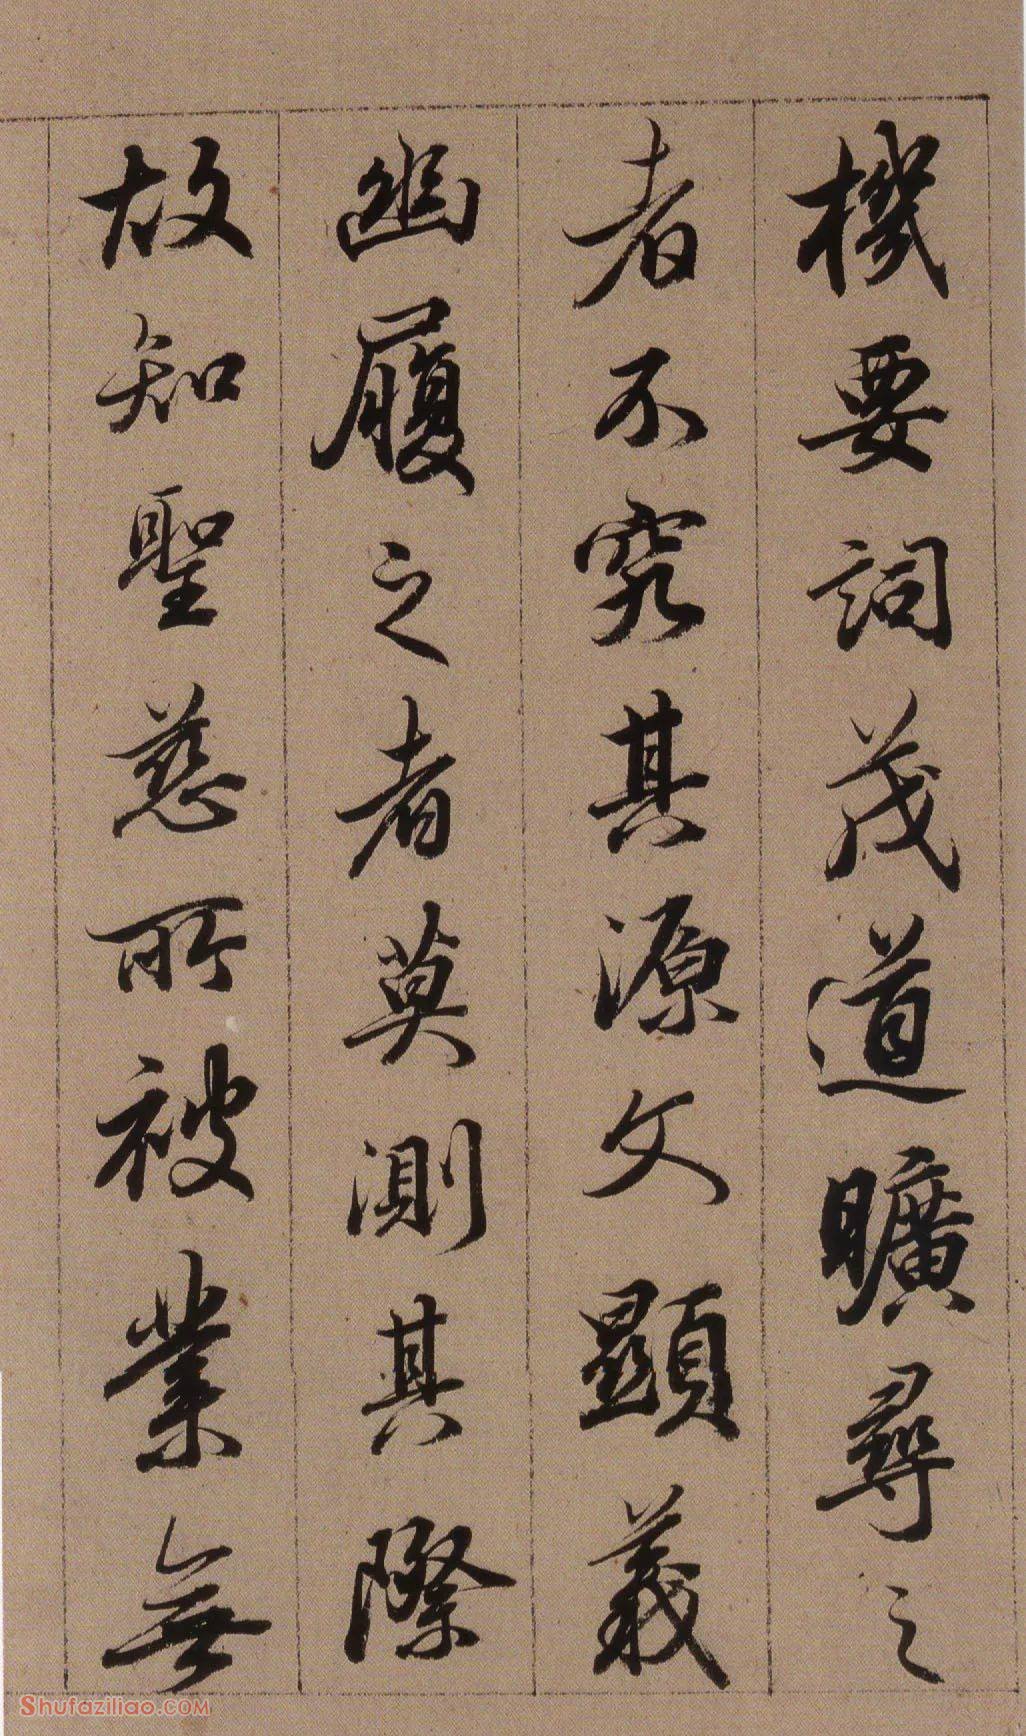 機要詞茂道曠尋之
者不究其源文顯義
幽履之者莫測其際
故知聖慈所被業無
Shufaziliao.com